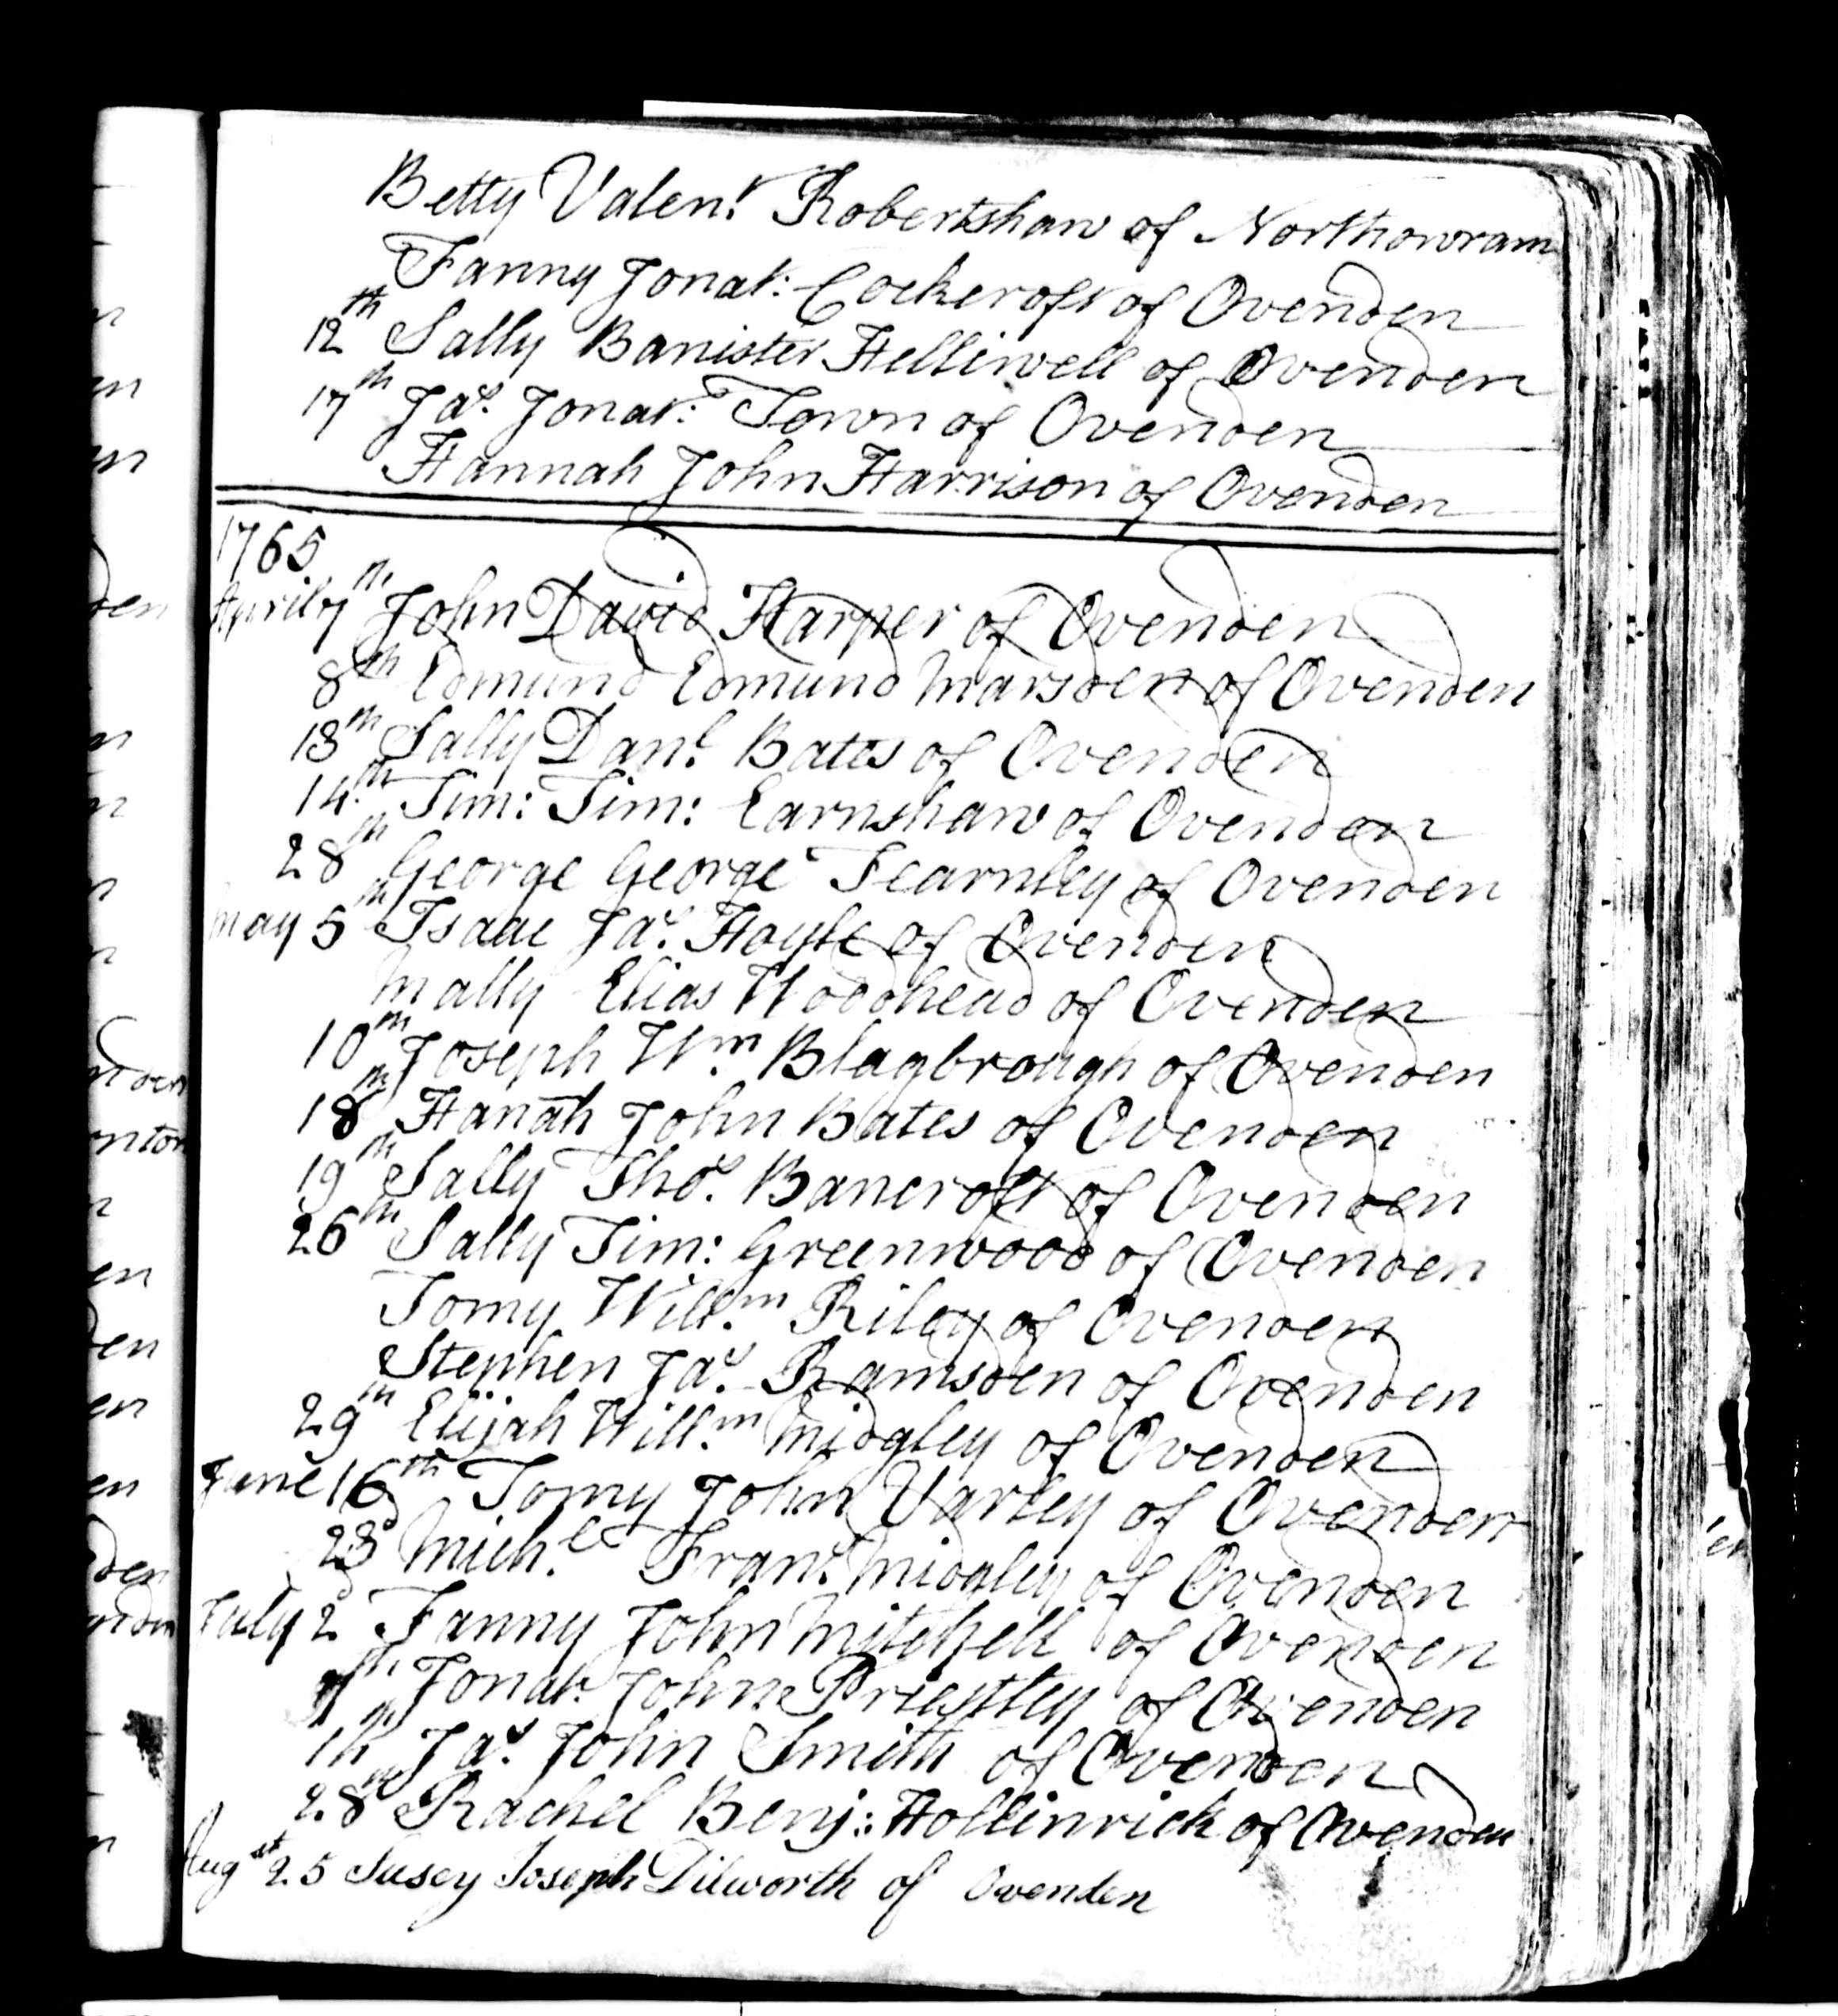 Betty Valen.t Robertshaw of Northowram
Fanny Jonat: Cockcroft of Ovenden
12th Sally Banister Helliwell of Ovenden
17th Jas. Jonat: Town of Ovenden
Hannah John Harrison of Ovenden
1765
April 7th John David Harper of Ovenden
8th Edmund Edmund Marsden of Ovenden
13th Sally Dan.l Bates of Ovenden
14th Tim: Tim: Earnshaw of Ovenden
28th George George Fearnley of Ovenden
May 5th Isaac Jas. Hoyle of Ovenden
Mally Elias Woodhead of Ovenden
10th Joseph Wm. Blagbrough of Ovenden
18th Hanah John Bates of Ovenden
19th Sally Thos. Bancroft of Ovenden
26th Sally Tim: Greenwood of Ovenden
Tomy Will.m Riley of Ovenden
Stephen Jas. Ramsden of Ovenden
29th Elijah Will.m Midgley of Ovenden
June 16th Tomy John Varley of Ovenden
23d Mich.el Fran.s Midgley of Ovenden
July 2d Fanny John Mitchell of Ovenden
7th Jonat. John Priestley of Ovenden
Jas. John Smith of Ovenden
28th Rachel Benj: Hollinrick of Ovenden
Augst 25 Susey Joseph Dilworth of Ovenden